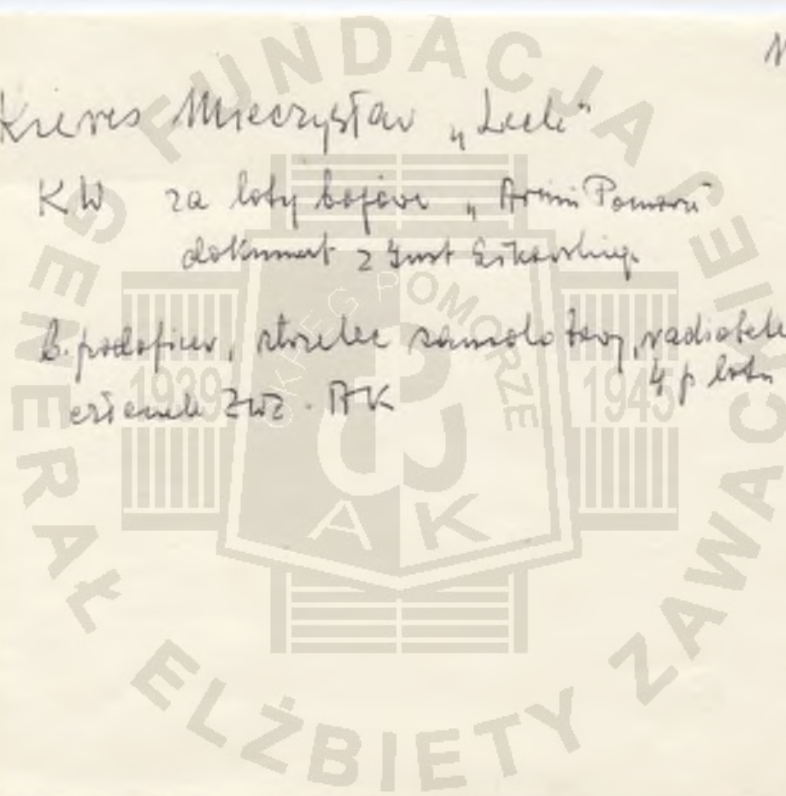 Mieczysław „Lech"
KW za loty bojowe „Armii Pomorze"
dokument z Inst Sikorskiego
B. podoficer, strzelec samolotowy, radiotele
4 p lotn
członek ZWZ - AK
FUNDACJA GENERAŁ ELŻBIETY ZAWACKIEJ
OKRĘG POMORZE
1939 1945
AK